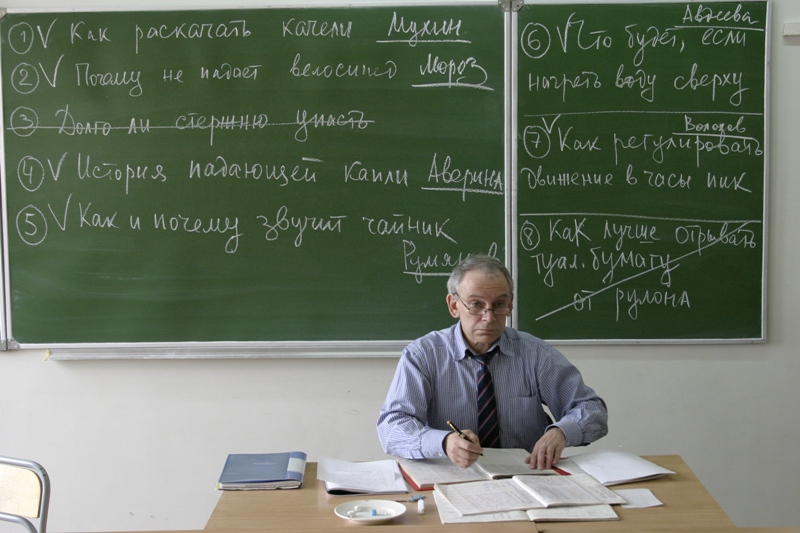 1 V Как раскачать качели Мухин
2 V Почему не падает велосипед Мороз
3 Долго ли стержню упасть
4 V История падающей капли Аверина
5 V Как и почему звучит чайник
Румянцев
Авдеева
6 V Что будет, если
нагреть воду сверху
Волохов
7 V Как регулировать
движение в часы пик
8 Как лучше отрывать
туал. бумагу
от рулона